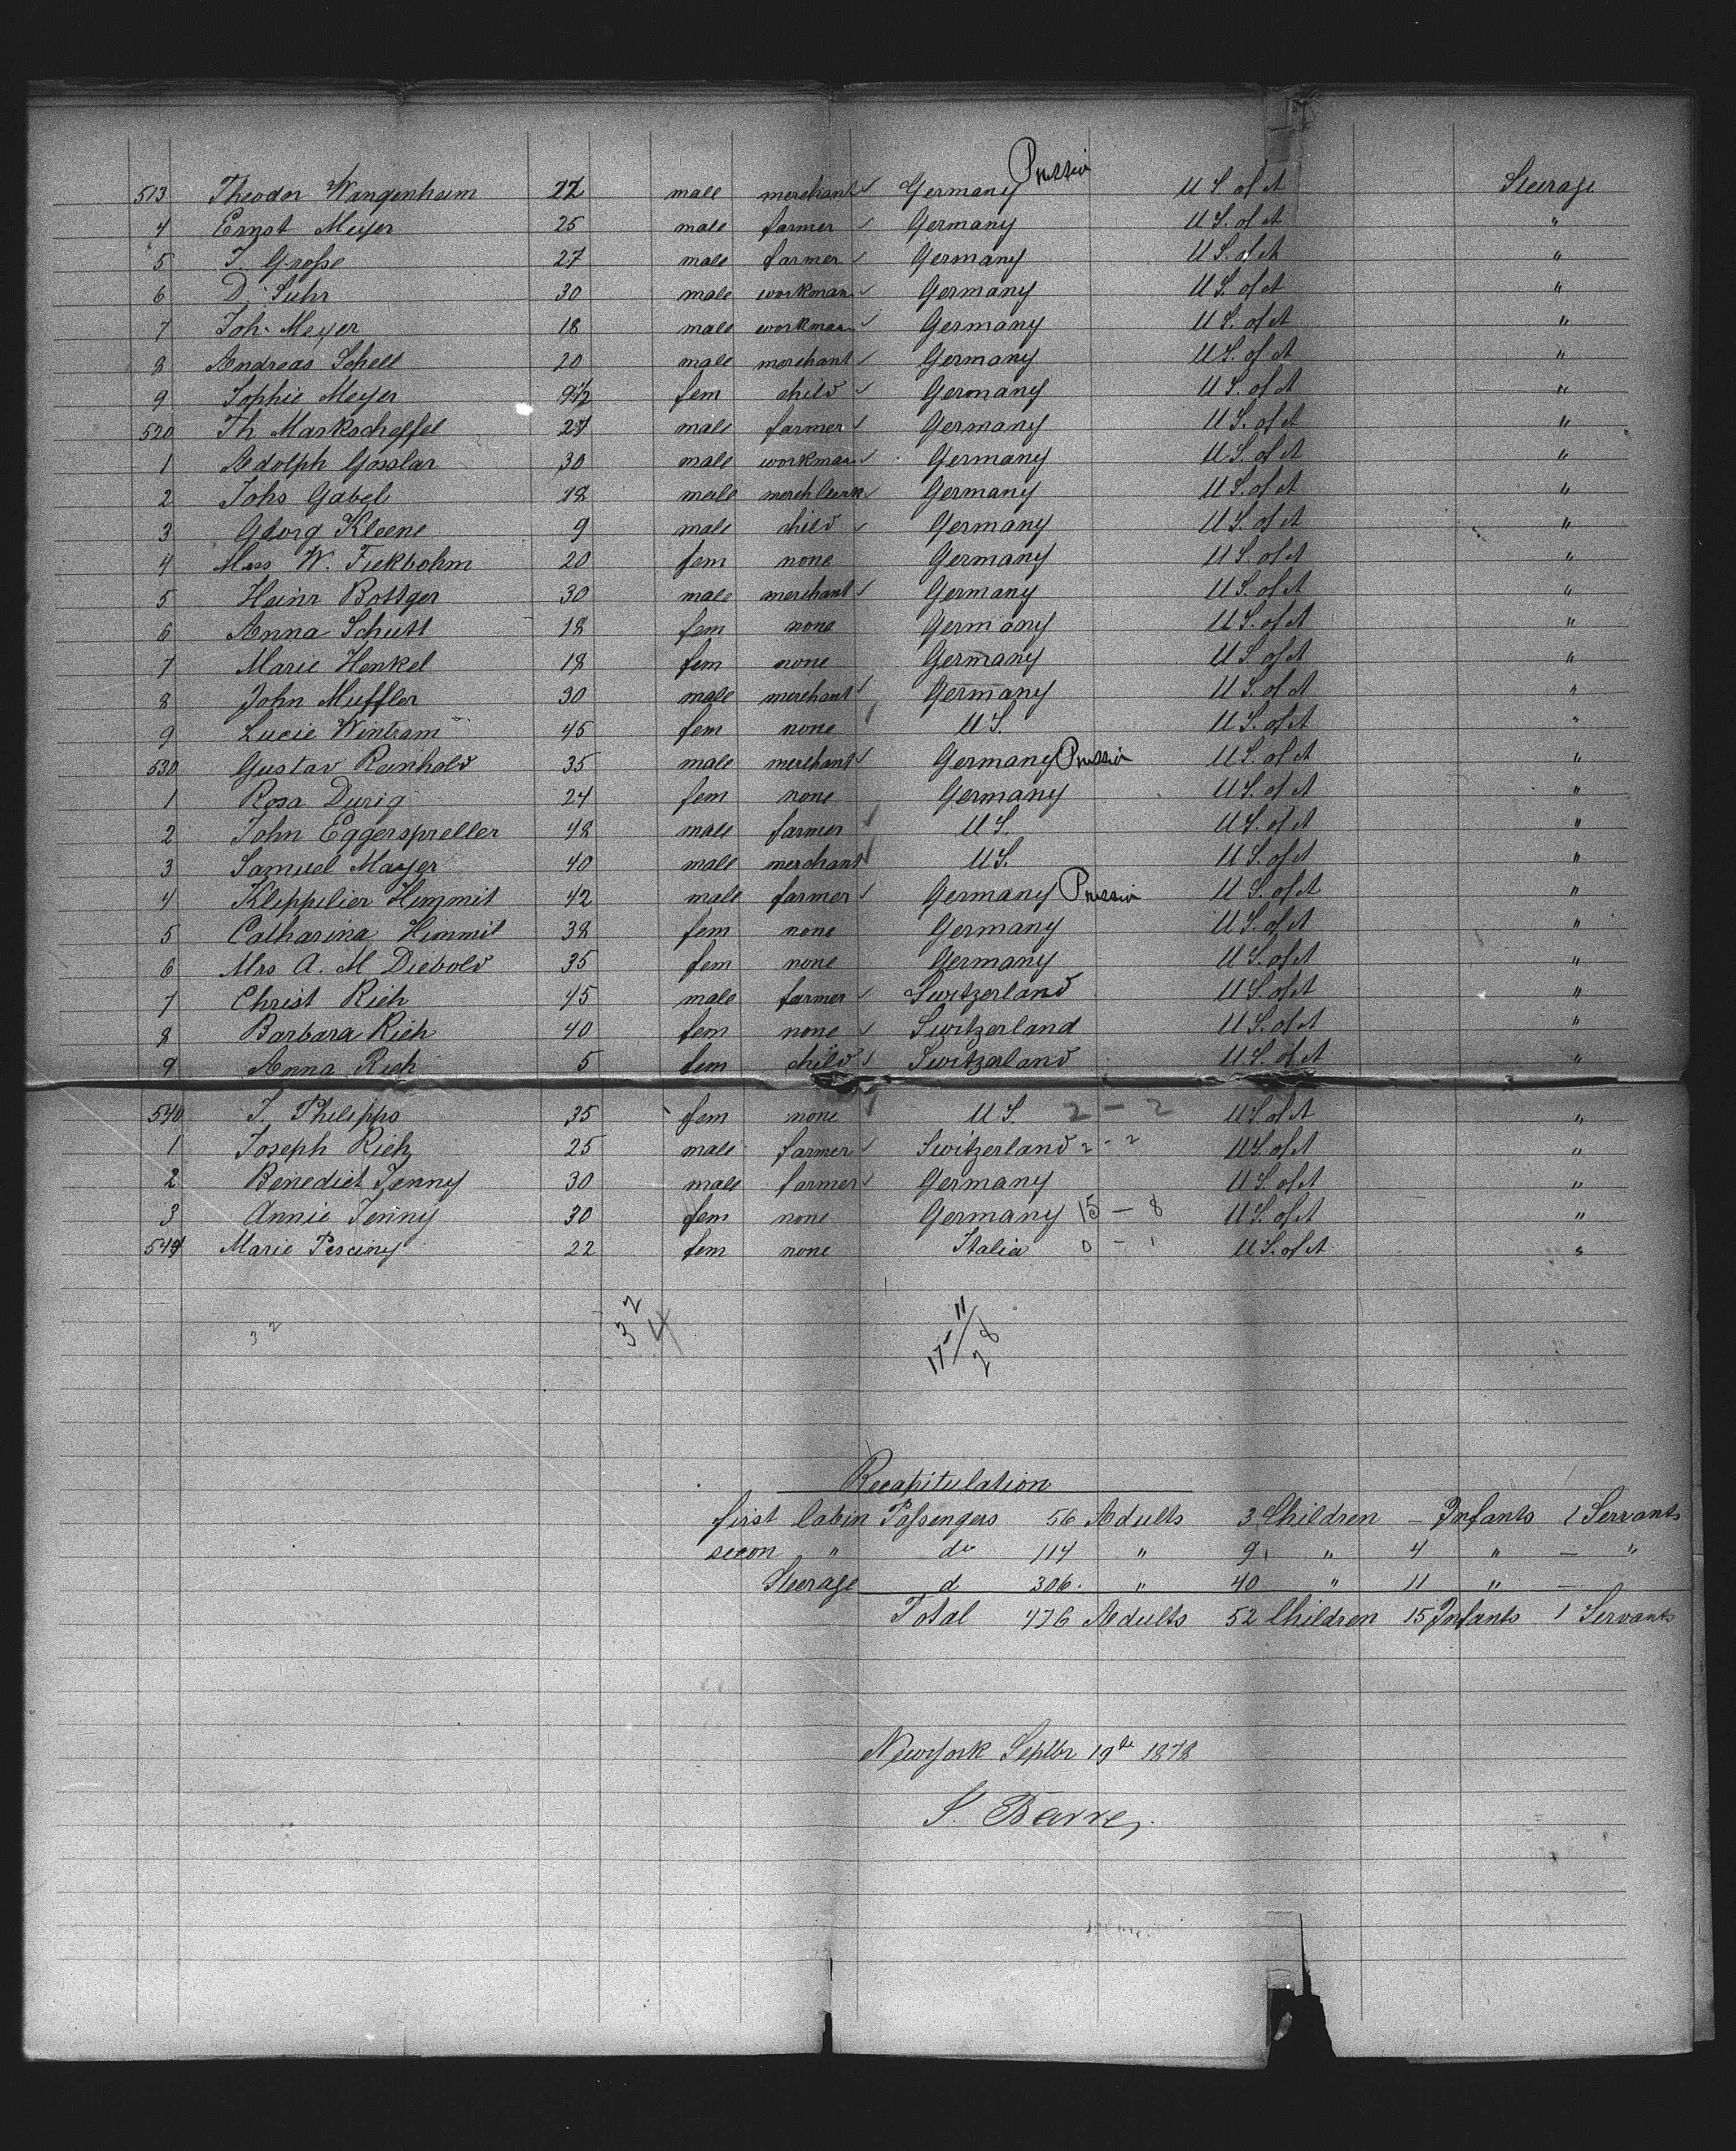 Prussia
513 Theodor Wangenheim 22 male merchant ✓ Germany U S. of A Steerage
4 Ernst Meyer 25 male farmer ✓ Germany U S. of A "
5 J. Große 27 male farmer ✓ Germany U S. of A "
6 D. Suhr 30 male workman ✓ Germany U S. of A "
7 Joh. Meyer 18 male workman ✓ Germany U S. of A "
8 Andreas Schell 20 male merchant ✓ Germany U S. of A "
9 Sophie Meyer 9 1/2 fem child ✓ Germany U S. of A "
520 Th Markscheffel 27 male farmer ✓ Germany U S. of A "
1 Adolph Gosslar 30 male workman ✓ Germany U S. of A "
2 Johs Gabel 18 male merch Clerk ✓ Germany U S. of A "
3 Georg Kleene 9 male child ✓ Germany U S. of A "
4 Miss W. Fickbohm 20 fem none Germany U S. of A "
5 Heinr Bottger 30 male merchant ✓ Germany U S. of A "
6 Anna Schutt 18 fem none Germany U S. of A "
7 Marie Henkel 18 fem none Germany U S. of A "
8 John Muffler 30 male merchant ✓ Germany U S. of A "
9 Lucie Wintram 45 fem none U S. U S. of A "
530 Gustav Reinhold 35 male merchant ✓ Germany Prussia U S. of A "
1 Rosa Durig 24 fem none Germany U S. of A "
2 John Eggerspreller 48 male farmer U S. U S. of A "
3 Samuel Mayer 40 male merchant U S. U S. of A "
4 Kleppelier Himmit 42 male farmer ✓ Germany Prussia U S. of A "
5 Catharina Himmit 38 fem none Germany U S. of A "
6 Mrs A. M Diebold 35 fem none Germany U S. of A "
7 Christ Rich 45 male farmer ✓ Switzerland U S. of A "
8 Barbara Rich 40 fem none ✓ Switzerland U S. of A "
9 Anna Rich 5 fem child ✓ Switzerland U S. of A "
540 J. Philipps 35 fem none U S. 2 - 2 U S. of A "
1 Joseph Rich 25 male farmer ✓ Switzerland 2 - 2 U S. of A "
2 Benedict Jenny 30 male farmer ✓ Germany U S. of A "
3 Annie Jenny 30 fem none Germany 15 - 8 U S. of A "
544 Marie Pesciny 22 fem none Italia 0 - 1 U S. of A "
32 32 4 17/11 28
Recapitulation
first Cabin Paßengers 56 Adults 3 Children – Infants 1 Servants
secon " do 114 " 9 " 4 " – "
Steerage d 306. " 40 " 11 " –
Total 476 Adults 52 Children 15 Infants 1 Servants
Newyork Septbr 19th 1878
S. Barre